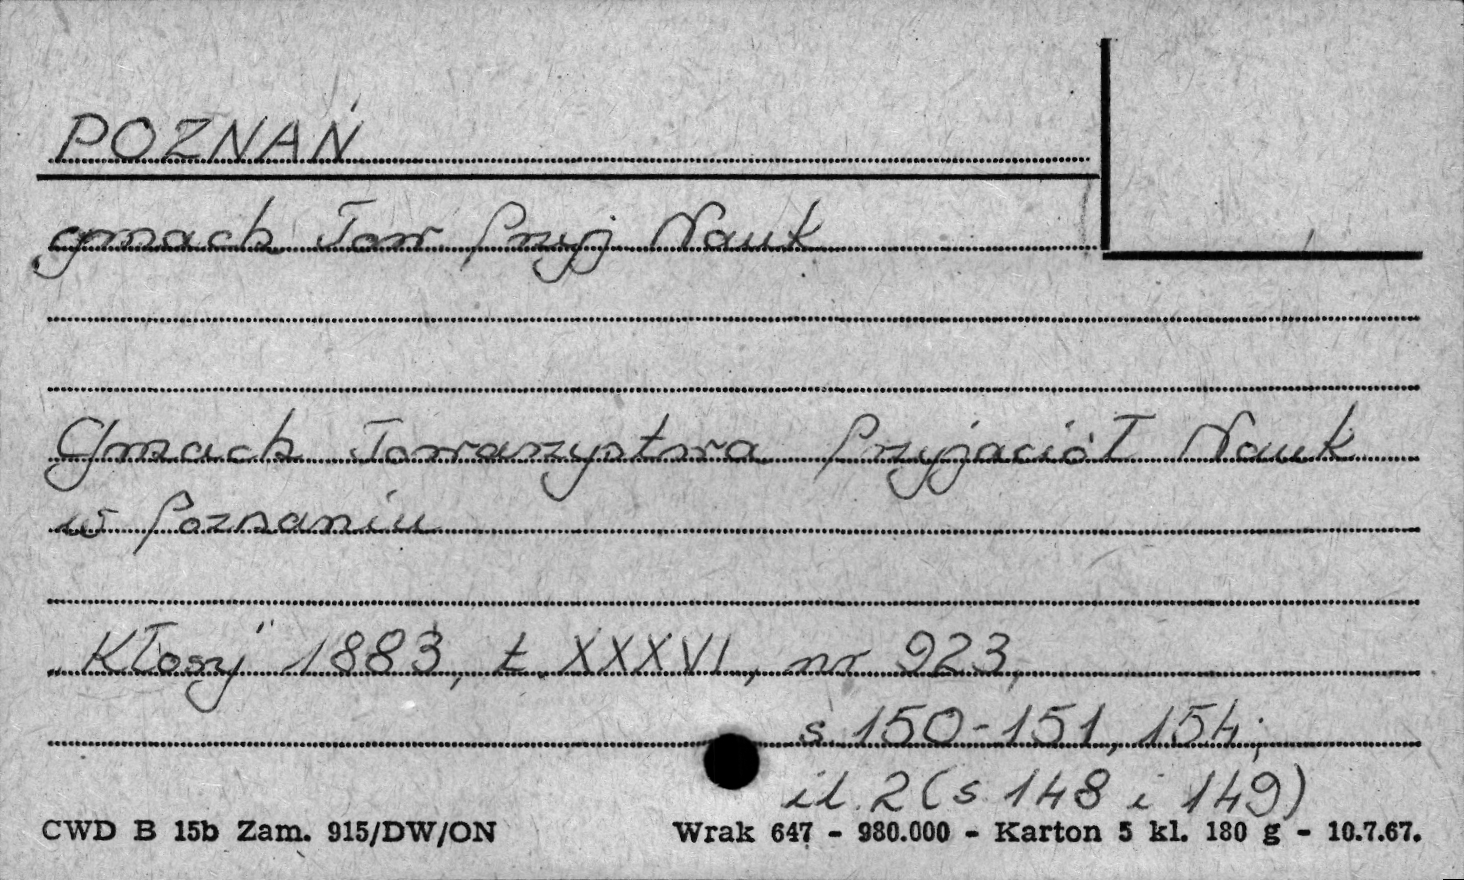 POZNAŃ
gmach Tow. Przyj. Nauk
Gmach Towarzystwa Przyjaciół Nauk
w Poznaniu
„Kłosy" 1883, t. XXXVI, nr 923,
s. 150-151, 154;
il. 2 (s. 148 i 149)
CWD B 15b Zam. 915/DW/ON
Wrak 647 - 980.000 - Karton 5 kl. 180 g - 10.7.67.